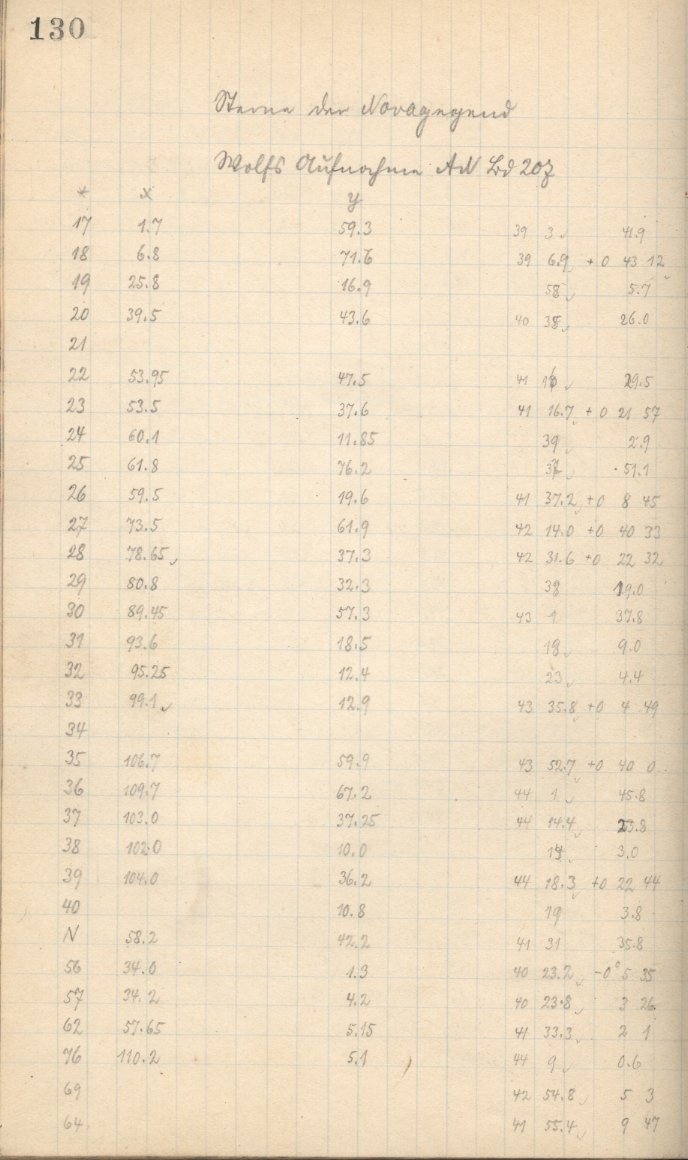 130
Sterne der Novagegend
Wolfs Aufnahme AN Bd 203
* x y
17 1.7 59.3 39 3 41.9
18 6.8 71.6 39 6.9 +0 43 12
19 25.8 16.9 58 5.7
20 39.5 43.6 40 38 26.0
21
22 53.95 47.5 41 29.5
23 53.5 37.6 41 16.7 +0 21 57
24 60.1 11.85 39 2.9
25 61.8 76.2 51.1
26 59.5 19.6 41 37.2 +0 8 45
27 73.5 61.9 42 14.0 +0 40 33
28 78.65 37.3 42 31.6 +0 22 32
29 80.8 32.3 38 19.0
30 89.45 57.3 43 1 37.8
31 93.6 18.5 18 9.0
32 95.25 12.4 23 4.4
33 99.1 12.9 43 35.8 +0 4 49
34
35 106.7 59.9 43 52.7 +0 40 0
36 109.7 67.2 44 1 45.8
37 103.0 37.25 44 14.4 23.8
38 102.0 10.0 3.0
39 104.0 36.2 44 18.3 +0 22 44
40 10.8 19 3.8
N 58.2 42.2 41 31 35.8
56 34.0 1.3 40 23.2 -0° 5 35
57 34.2 4.2 40 23.8 3 26
62 57.65 5.15 41 33.3 2 1
76 110.2 5.1 44 9 0.6
69 42 54.8 5 3
64 41 55.4 9 47